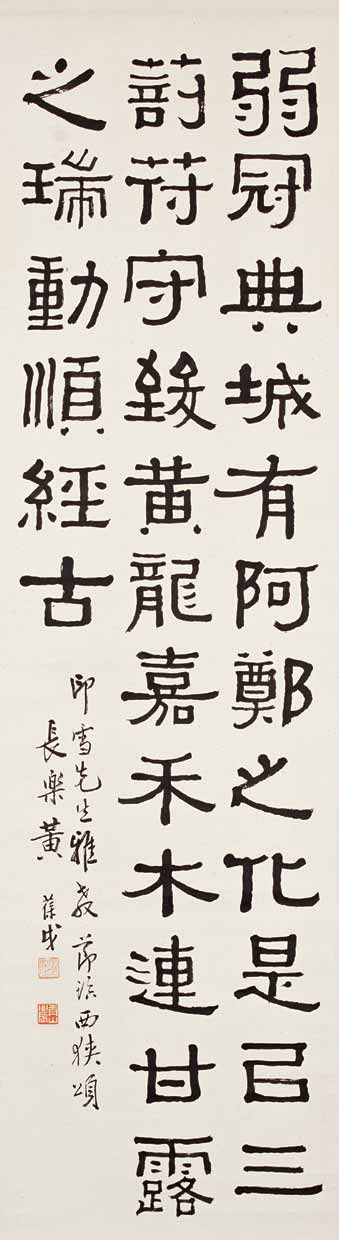 弱冠典城有阿鄭之化是已三
剖苻守致黃龍嘉禾木連甘露
之瑞動順經古
印雪先生雅教 節臨西狹頌
長樂黃葆戉